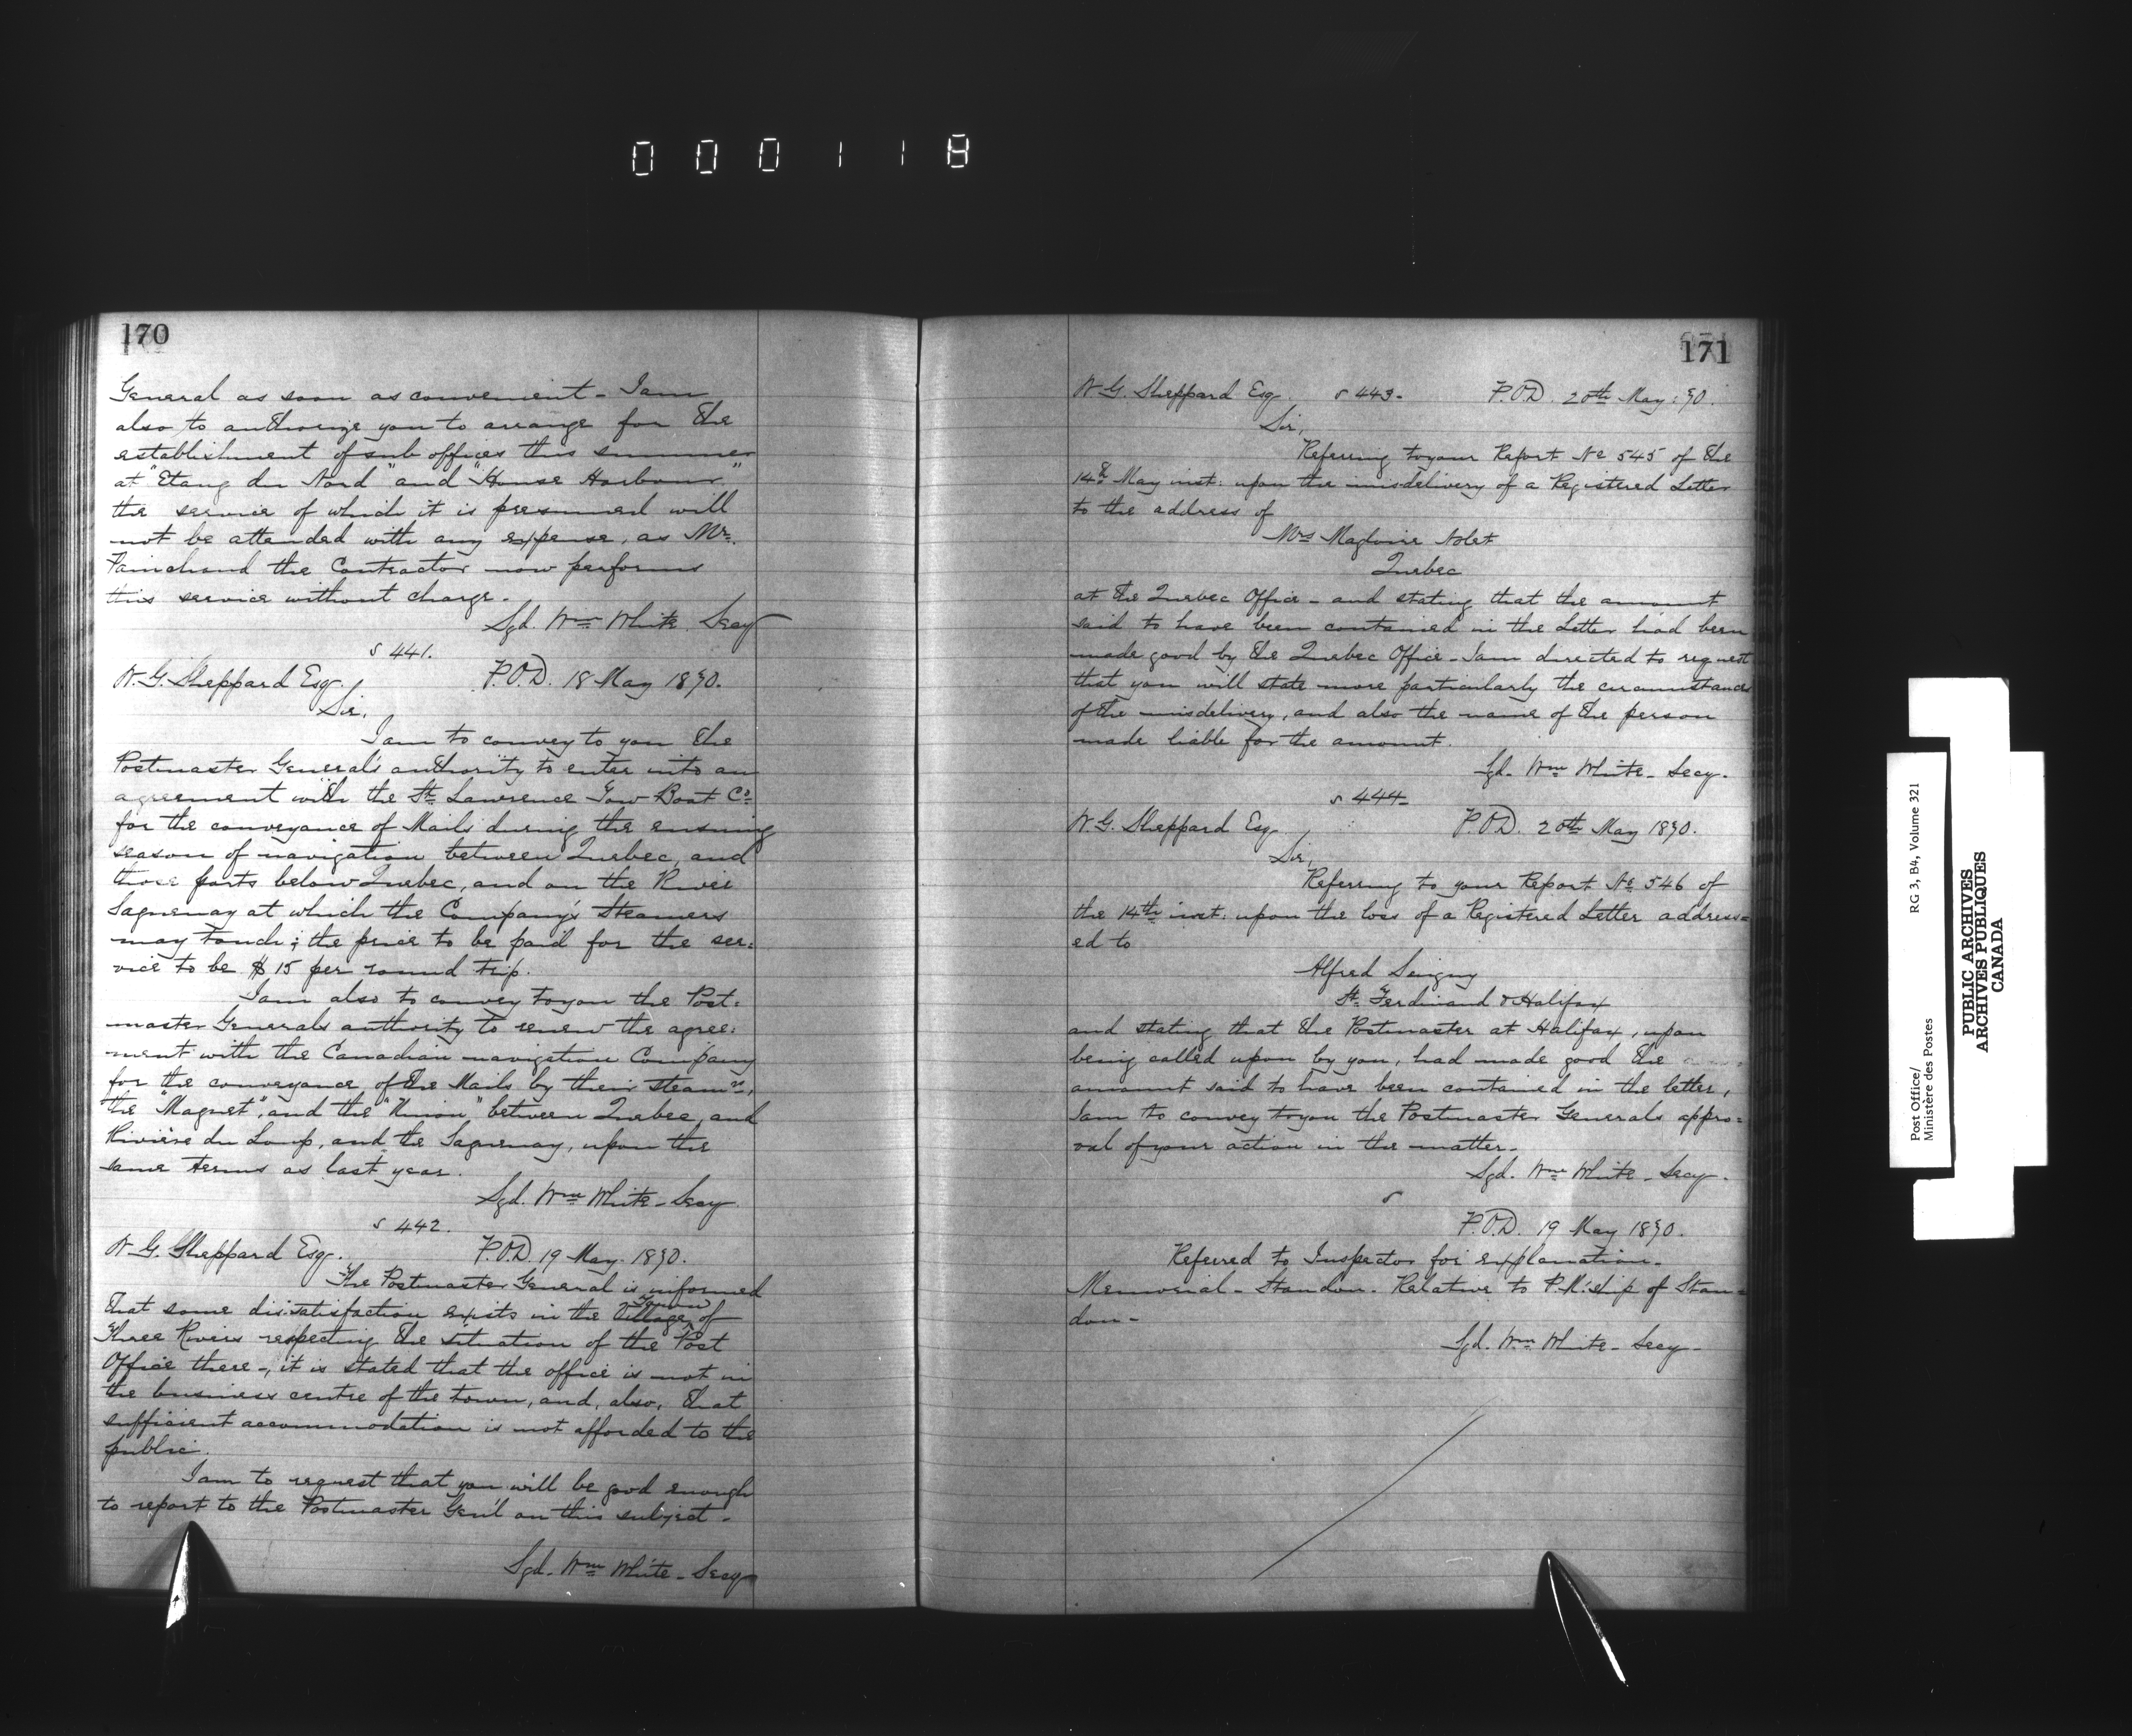 000118
170
General as soon as convenient - I am
also to authorize you to arrange for the
establishment of sub offices this summer
at "Etang du Nord" and "House Harbour"
the service of which it is presumed will
not be attended with any expense, as Mr.
Painchaud the Contractor now performs
this service without charge.
Sgd. Wm White Secy
S 441.
W. G. Sheppard Esq. P.O.D. 18 May 1870.
Sir,
I am to convey to you the
Postmaster General's authority to enter into an
agreement with the St. Lawrence Tow Boat Co.
for the conveyance of Mails during the ensuing
season of navigation between Quebec, and
those ports below Quebec, and on the River
Saguenay at which the Company's Steamers
may touch; the price to be paid for the ser:
vice to be $15 per round trip.
I am also to convey to you the Post:
master Generals authority to renew the agree:
ment with the Canadian navigation Company
for the conveyance of the Mails by their steamrs,
the "Magnet", and the "Union" between Quebec, and
Rivière du Loup, and the Saguenay, upon the
same terms as last year.
Sgd. Wm White - Secy
S 442.
W. G. Sheppard Esq. P.O.D. 19 May 1870.
The Postmaster General is informed
that some dissatisfaction exists in the Village of
Three Rivers respecting the situation of the Post
Office there -, it is stated that the office is not in
the business centre of the town, and, also, that
sufficient accommodation is not afforded to the
public.
I am to request that you will be good enough
to report to the Postmaster Gen'l on this subject -
Sgd. Wm White - Secy
171
W. G. Sheppard Esq. S 443 - P.O.D. 20th May: 70.
Sir,
Referring to your Report No 545 of the
14th May inst: upon the misdelivery of a Registered Letter
to the address of
Mrs Magloire Nolet
Quebec
at the Quebec Office - and stating that the amount
said to have been contained in the Letter had been
made good by the Quebec Office - I am directed to request
that you will state more particularly the circumstances
of the misdelivery, and also the name of the person
made liable for the amount.
Sgd. Wm White - Secy.
S 444 -
W. G. Sheppard Esq. P.O.D. 20th May 1870.
Sir,
Referring to your Report No 546 of
the 14th inst: upon the loss of a Registered Letter address=
ed to
Alfred Sevigny
St. Ferdinand d'Halifax
and stating that the Postmaster at Halifax, upon
being called upon by you, had made good the
amount said to have been contained in the letter,
I am to convey to you the Postmaster Generals appro=
val of your action in the matter -
Sgd. Wm White - Secy.
S
P.O.D. 19 May 1870.
Referred to Inspector for explanation -
Memorial - Standon. Relative to P.M.'ship of Stan=
don -
Sgd. Wm White - Secy -
Post Office/
Ministère des Postes
RG 3, B4, Volume 321
PUBLIC ARCHIVES
ARCHIVES PUBLIQUES
CANADA